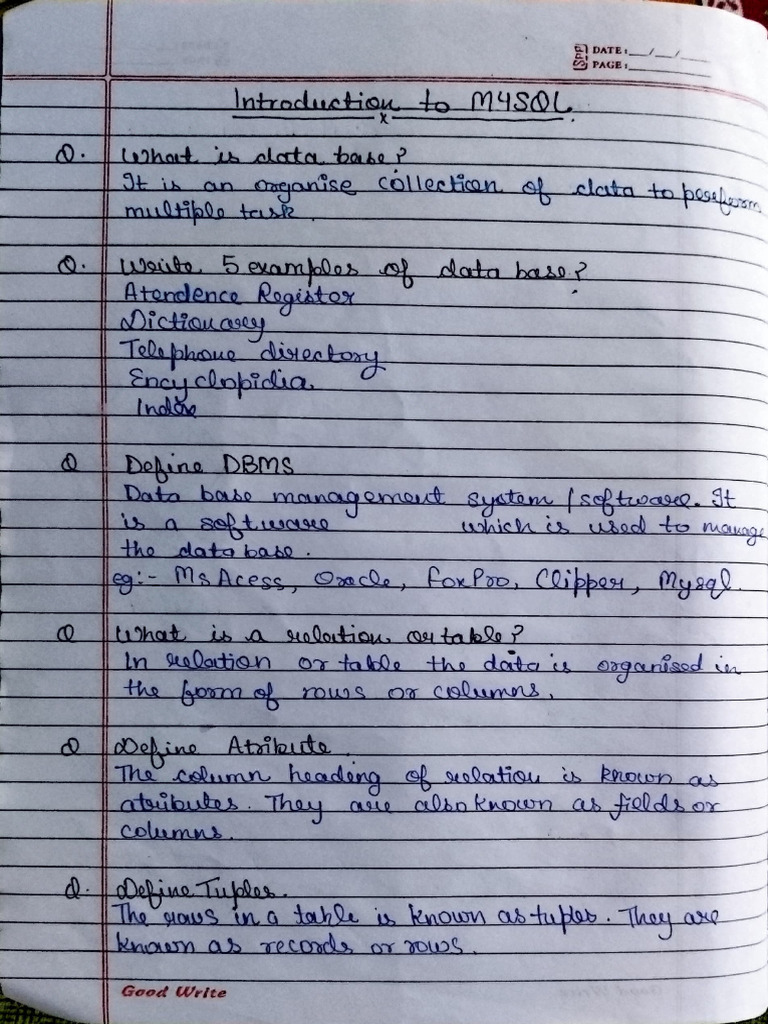 DATE: _/_/_
PAGE:
Introduction to MYSQL
x
Q. What is data base?
It is an organise collection of data to perform
multiple task.
Q. Write 5 examples of data base?
Atendence Register
Dictionary
Telephone directory
Encyclopidia
Index
Q Define DBMS
Data base management system / software. It
is a software which is used to manage
the data base.
eg:- Ms Acess, Oracle, FoxPro, Clipper, Mysql.
Q What is a relation or table?
In relation or table the data is organised in
the form of rows or columns.
Q Define Atribute
The column heading of relation is known as
atributes. They are also known as fields or
columns.
Q. Define Tuples.
The rows in a table is known as tuples. They are
known as records or rows.
Good Write